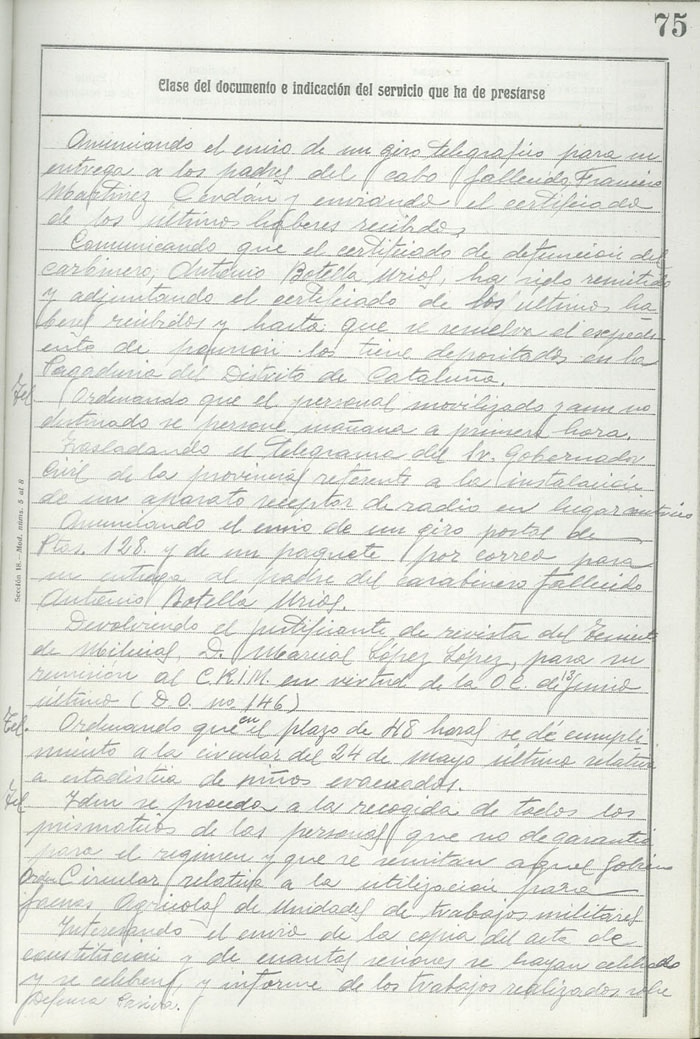 75
Clase del documento e indicación del servicio que ha de prestarse
Anunciando el envio de un giro telegrafico para su
entrega a los padres del cabo fallecido, Francisco
Martinez Cerdán y enviando el certificado
de los últimos haberes recibidos.
Comunicando que el certificado de defuncion del
carabinero, Antonio Botella Urios, ha sido remitido
y adjuntando el certificado de los últimos ha-
beres recibidos y hasta que se resuelva el expedi-
ente de pension los tiene depositados en la
Pagaduria del Distrito de Cataluña.
Tel. Ordenando que el personal movilizado y aun no
destinado se persone mañana a primera hora.
Trasladando el telegrama del Sr. Gobernador
Civil de la provincia referente a la instalación
de un aparato receptor de radio en lugar
Anunciando el envio de un giro postal de
Ptas. 128. y de un paquete por correo para
su entrega al padre del carabinero fallecido
Antonio Botella Urios.
Devolviendo el justificante de revista del Teniente
de Milicias, D. Marcial López López, para su
remisión al C.R.I.M. en virtud de la O.C. de 13 Junio
último (D.O. no. 146)
Tel. Ordenando que en el plazo de 48 horas se dé cumpli-
miento a la circular del 24 de mayo último relativa
a estadistica de niños evacuados.
Tel Idem se proceda a la recogida de todos los
prismaticos de las personas que no de garantia
para el regimen y que se remitan a aquel Gobierno
Orden Circular relativa a la utilización para
faenas Agricolas de Unidades de trabajos militares
Interesando el envio de la copia del acta de
constitución y de cuantas reuniones se hayan celebrado
y se celebren y informe de los trabajos realizados sobre
Defensa Pasiva.
Sección 18.- Mod. núms. 5 al 8